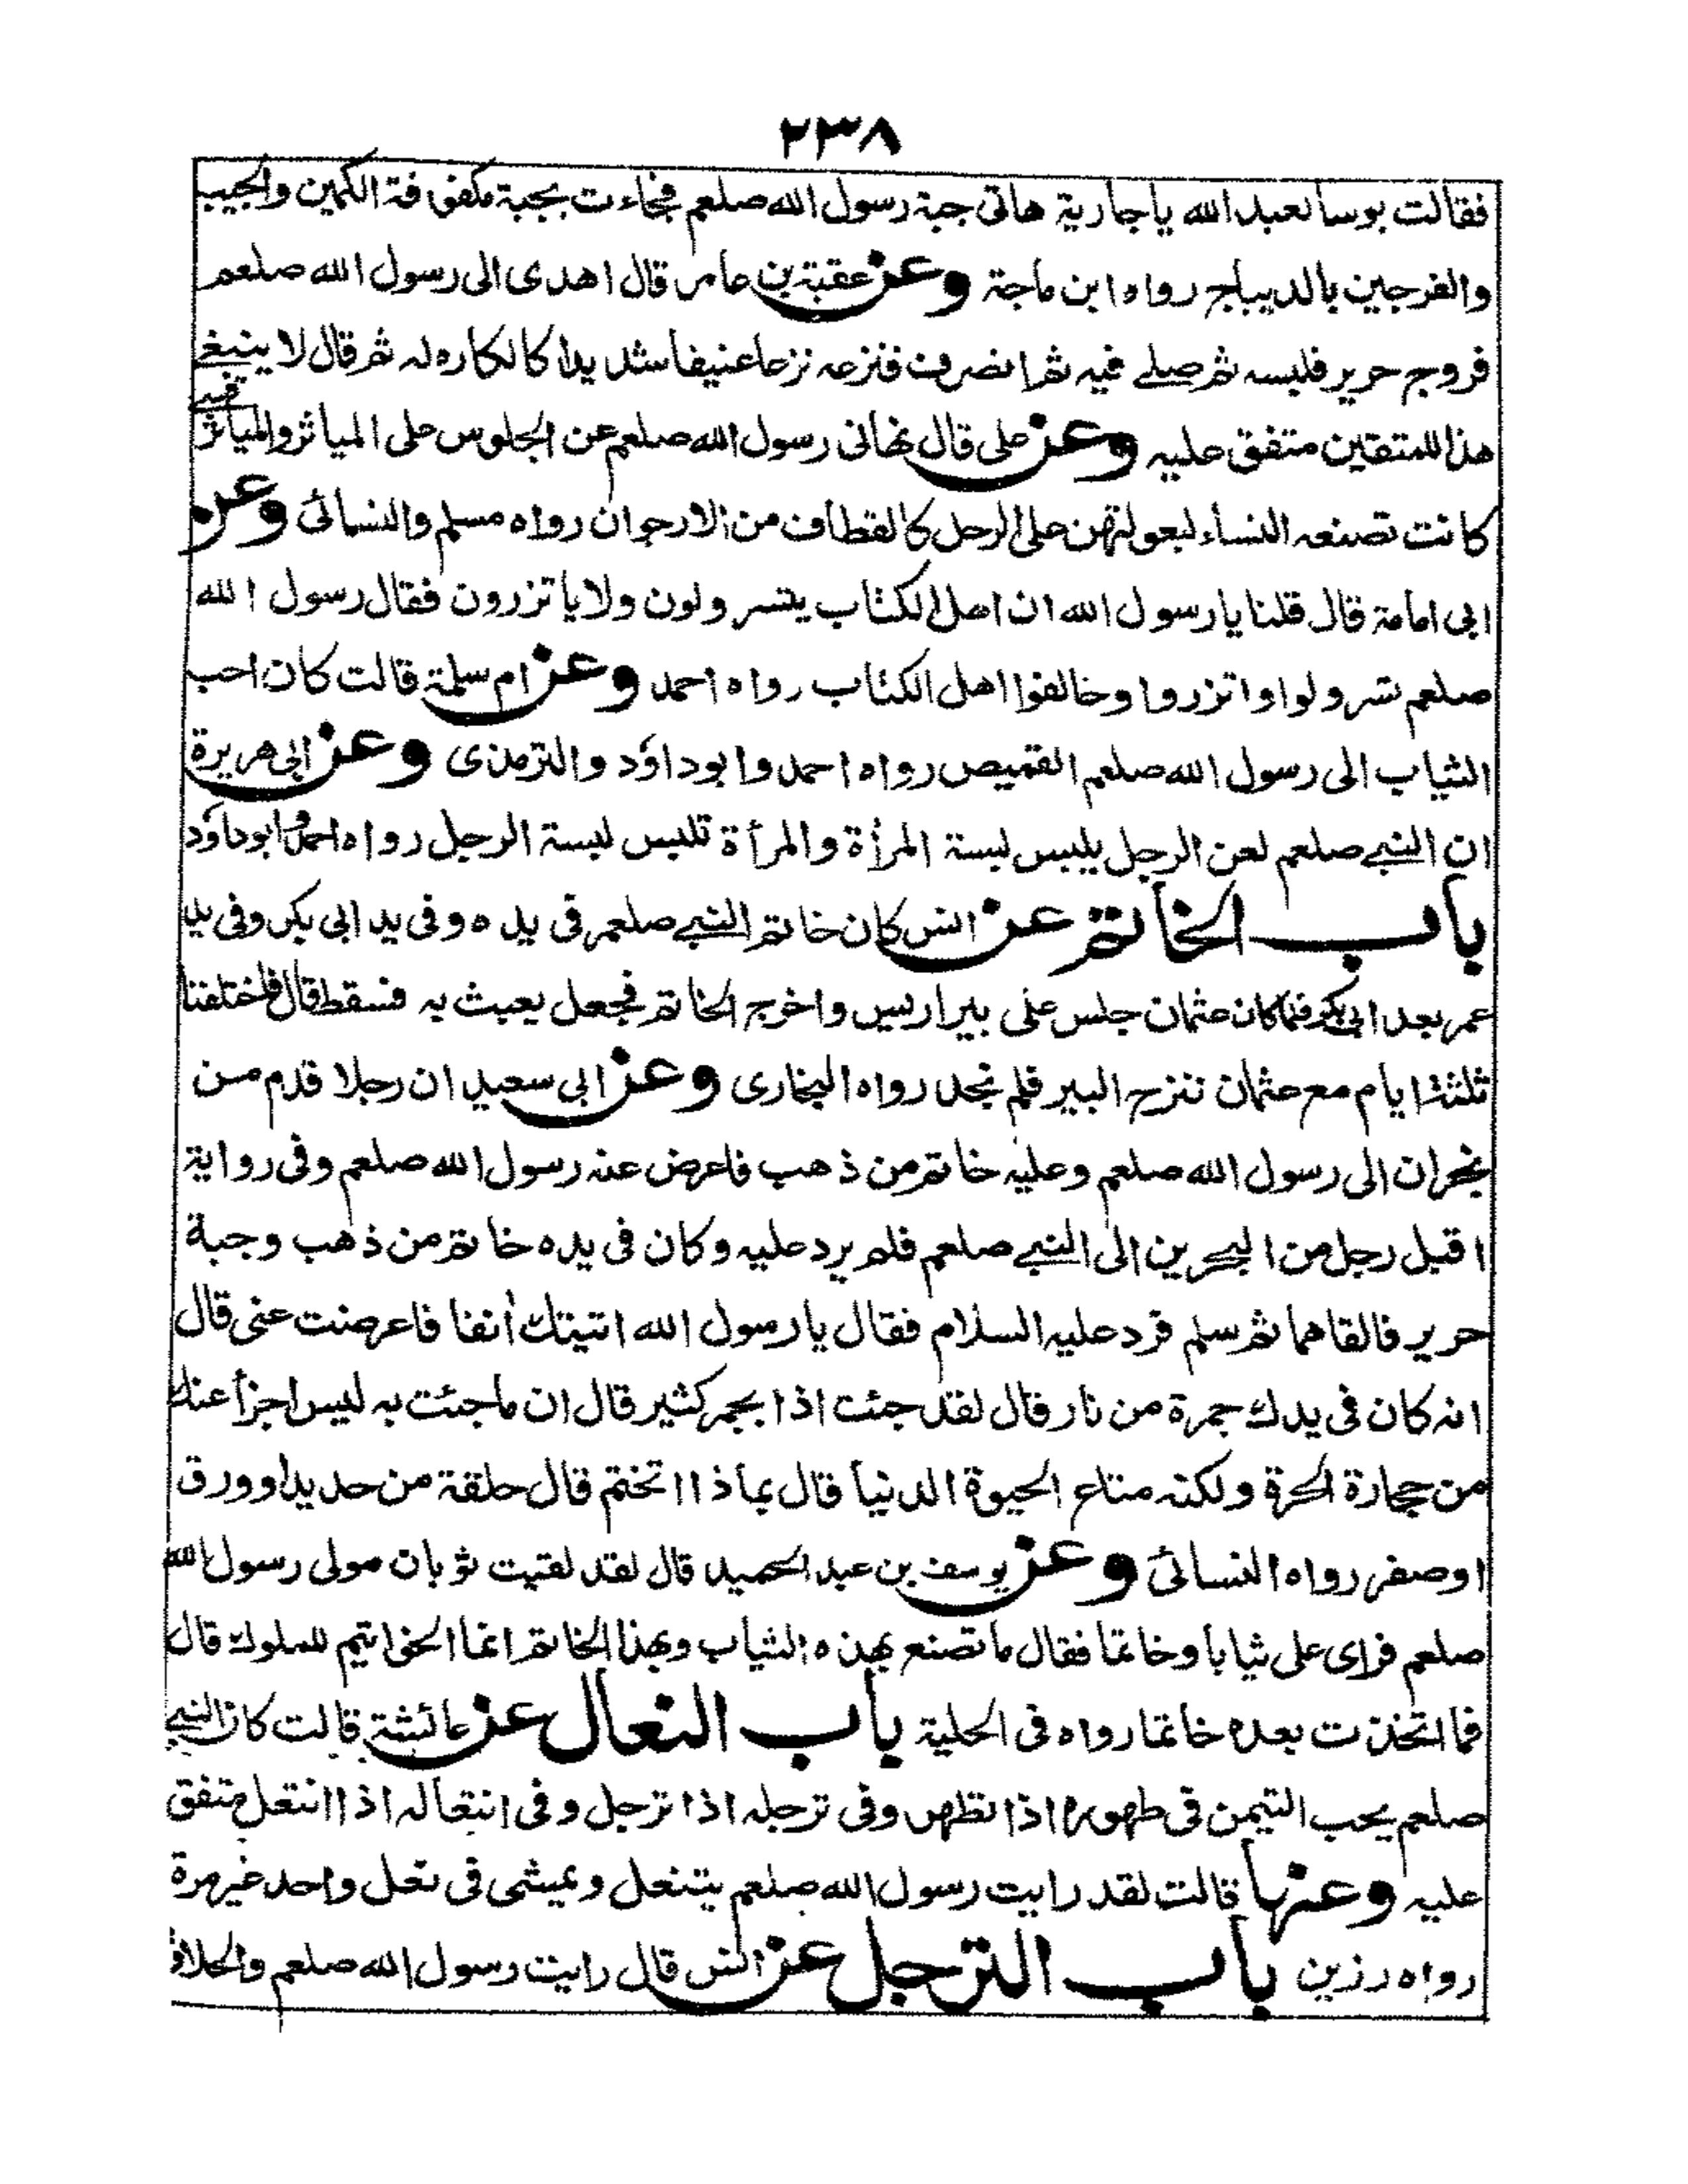 ٢٣٨
فقالت بوسا لعبد الله يا جارية هاتى جبة رسول الله صلعم فجاءت بجبة مكفوفة الكمين والجيب
والفرجين بالديباج رواه ابن ماجة وعن عقبة بن عامر قال اهدى الى رسول الله صلعم
فروج حرير فلبسه ثم صلے فيه ثم انصرف فنزعه نزعا عنيفا شديدا كالكاره له ثم قال لا ينبغے
هذا للمتقين متفق عليه وعن على قال نهانى رسول الله صلعم عن الجلوس على المياثر والمياثر
كانت تصنعه النساء لبعولتهن على الرحل كالقطاف من الارجوان رواه مسلم والنسائى وعن
ابى امامة قال قلنا يا رسول الله ان اهل الكتاب يتسرولون ولا ياتزرون فقال رسول الله
صلعم تسرولوا واتزروا وخالفوا اهل الكتاب رواه احمد وعن ام سلمة قالت كان احب
الثياب الى رسول الله صلعم القميص رواه احمد وابو داؤد والترمذى وعن ابى هريرة
ان النبے صلعم لعن الرجل يلبس لبسة المرأة والمرأة تلبس لبسة الرجل رواه احمد وابو داؤد
باب الخاتم عن انس كان خاتم النبے صلعم فى يده وفى يد ابى بكر وفى يد
عمر بعد ابى بكر فلما كان عثمان جلس على بير اريس واخرج الخاتم فجعل يعبث به فسقط قال فاختلفنا
ثلثة ايام مع عثمان ننزح البير فلم نجد رواه البخارى وعن ابى سعيد ان رجلا قدم من
نجران الى رسول الله صلعم وعليه خاتم من ذهب فاعرض عنه رسول الله صلعم وفى رواية
اقبل رجل من البحرين الى النبے صلعم فلم يرد عليه وكان فى يده خاتم من ذهب وجبة
حرير فالقاهما ثم سلم فرد عليه السلام فقال يا رسول الله اتيتك أنفا فاعرضت عنى قال
انه كان فى يدك جمرة من نار قال لقد جئت اذا بجمر كثير قال ان ما جئت به ليس اجزأ عنك
من حجارة الحرة ولكنه متاع الحيوة الدنيا قال بماذا اتختم قال حلقة من حديد او ورق
او صفر رواه النسائى وعن يوسف بن عبد الحميد قال لقد لقيت ثوبان مولى رسول الله
صلعم فراى على ثيابا وخاتما فقال ما تصنع بهذه الثياب وبهذا الخاتم انما الخواتيم للملوك قال
فما اتخذت بعده خاتما رواه فى الحلية باب النعال عن عائشة قالت كان النبے
صلعم يحب التيمن فى طهوره اذا تطهر وفى ترجله اذا ترجل وفى انتعاله اذا انتعل متفق
عليه وعنها قالت لقد رايت رسول الله صلعم يتنعل ويمشى فى نعل واحد غير مرة
رواه رزين باب الترجل عن انس قال رايت رسول الله صلعم والحلاق